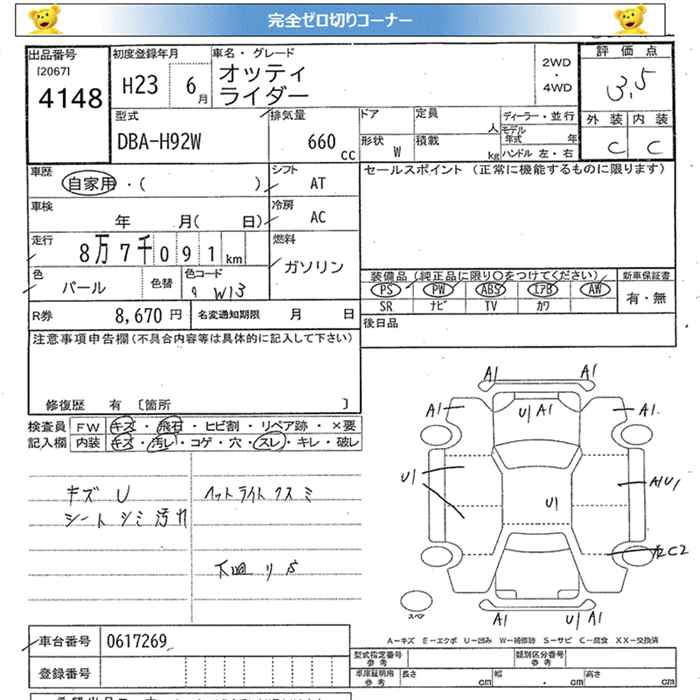 完全ゼロ切りコーナー
出品番号 初度登録年月 車名・グレード 2WD ・ 4WD 評価点
[2067]
4148 H23 6月 オッティ ライダー 3.5
型式 排気量 ドア 定員 人 ディーラー・並行 外装 内装
DBA-H92W 660cc 形状 W 積載 kg モデル年式 年 ハンドル 左・右 C C
車歴 自家用・( ) シフト AT セールスポイント (正常に機能するものに限ります)
車検 年 月( 日) 冷房 AC
走行 8万7千091km 燃料 ガソリン
色 パール 色替 色コード W13
装備品 (純正品に限り○をつけてください) 新車保証書
PS PW ABS エアB AW 有・無
SR ナビ TV カワ
R券 8,670円 名変通知期限 月 日 後日品
注意事項申告欄(不具合内容等は具体的に記入して下さい)
修復歴 有 〔箇所 〕
検査員記入欄 FW キズ・飛石・ヒビ割・リペア跡・×要
内装 キズ・汚レ・コゲ・穴・スレ・キレ・破レ
キズ U ヘットライトクスミ
シートシミ汚れ
下廻り
A1 A1
A1 U1 A1 A1
U1 U1 A1U1
C2
A1 U1 A1
スペア
A-キズ E-エクボ U-凹み W-補修跡 S-サビ C-腐食 XX-交換済
車台番号 0617269
型式指定番号 参考 類別区分番号 参考
登録番号
車庫証明用 参考 長さ cm 幅 cm 高さ cm